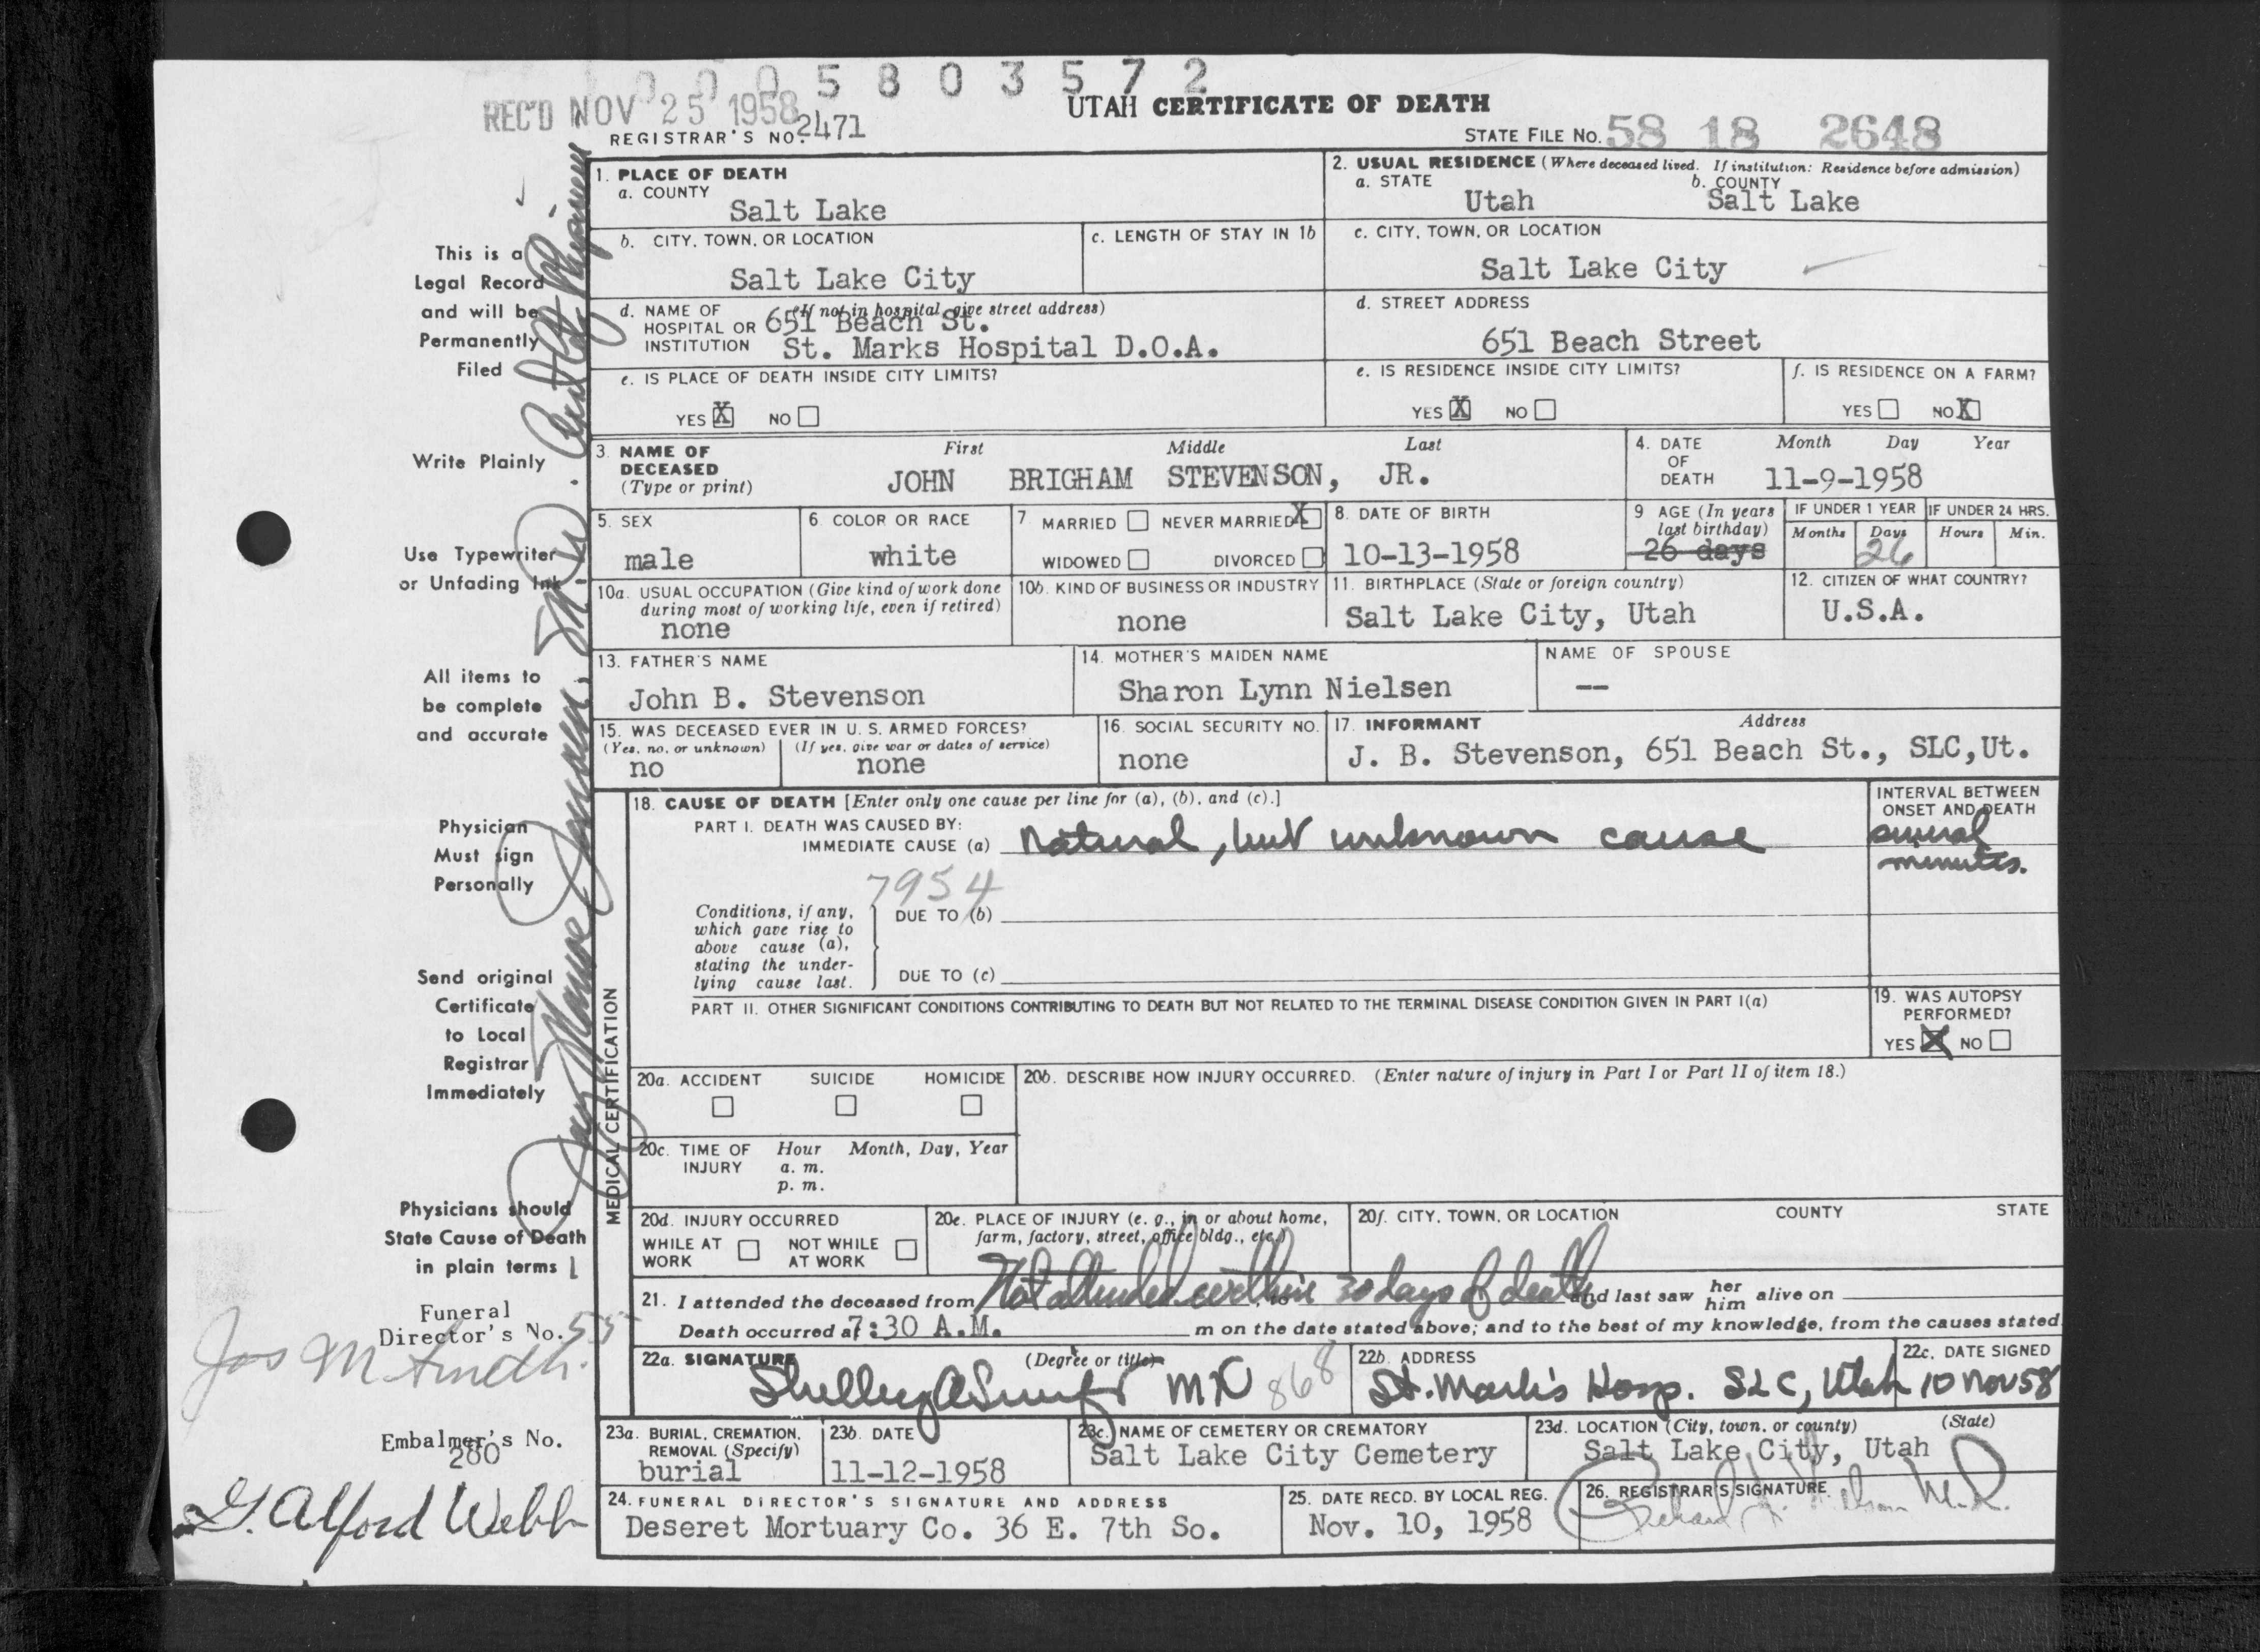 0 0 0 5 8 0 3 5 7 2
REC'D NOV 25 1958
UTAH CERTIFICATE OF DEATH
REGISTRAR'S NO. 2471
STATE FILE NO. 58 18 2648
1. PLACE OF DEATH
a. COUNTY
Salt Lake
2. USUAL RESIDENCE (Where deceased lived. If institution: Residence before admission)
a. STATE
Utah
b. COUNTY
Salt Lake
b. CITY, TOWN, OR LOCATION
Salt Lake City
c. LENGTH OF STAY IN 1b
c. CITY, TOWN, OR LOCATION
Salt Lake City
d. NAME OF HOSPITAL OR INSTITUTION
(If not in hospital, give street address)
651 Beach St.
St. Marks Hospital D.O.A.
d. STREET ADDRESS
651 Beach Street
e. IS PLACE OF DEATH INSIDE CITY LIMITS?
YES X NO
e. IS RESIDENCE INSIDE CITY LIMITS?
YES X NO
f. IS RESIDENCE ON A FARM?
YES NO X
3. NAME OF DECEASED (Type or print)
First Middle Last
JOHN BRIGHAM STEVENSON, JR.
4. DATE OF DEATH
Month Day Year
11-9-1958
5. SEX
male
6. COLOR OR RACE
white
7 MARRIED NEVER MARRIED X
WIDOWED DIVORCED
8. DATE OF BIRTH
10-13-1958
9 AGE (In years last birthday)
26 days
IF UNDER 1 YEAR
Months Days
26
IF UNDER 24 HRS.
Hours Min.
10a. USUAL OCCUPATION (Give kind of work done during most of working life, even if retired)
none
10b. KIND OF BUSINESS OR INDUSTRY
none
11. BIRTHPLACE (State or foreign country)
Salt Lake City, Utah
12. CITIZEN OF WHAT COUNTRY?
U.S.A.
13. FATHER'S NAME
John B. Stevenson
14. MOTHER'S MAIDEN NAME
Sharon Lynn Nielsen
NAME OF SPOUSE
--
15. WAS DECEASED EVER IN U. S. ARMED FORCES?
(Yes, no, or unknown) (If yes, give war or dates of service)
no none
16. SOCIAL SECURITY NO.
none
17. INFORMANT Address
J. B. Stevenson, 651 Beach St., SLC, Ut.
MEDICAL CERTIFICATION
18. CAUSE OF DEATH [Enter only one cause per line for (a), (b), and (c).]
PART I. DEATH WAS CAUSED BY:
IMMEDIATE CAUSE (a) Natural, but unknown cause
INTERVAL BETWEEN ONSET AND DEATH
several
minutes.
7954
Conditions, if any, which gave rise to above cause (a), stating the underlying cause last.
DUE TO (b)
DUE TO (c)
PART II. OTHER SIGNIFICANT CONDITIONS CONTRIBUTING TO DEATH BUT NOT RELATED TO THE TERMINAL DISEASE CONDITION GIVEN IN PART I(a)
19. WAS AUTOPSY PERFORMED?
YES X NO
20a. ACCIDENT SUICIDE HOMICIDE
20b. DESCRIBE HOW INJURY OCCURRED. (Enter nature of injury in Part I or Part II of item 18.)
20c. TIME OF INJURY
Hour Month, Day, Year
a. m.
p. m.
20d. INJURY OCCURRED
WHILE AT WORK NOT WHILE AT WORK
20e. PLACE OF INJURY (e. g., in or about home, farm, factory, street, office bldg., etc.)
20f. CITY, TOWN, OR LOCATION COUNTY STATE
21. I attended the deceased from Not attended within 30 days of death and last saw her him alive on
Death occurred at 7:30 A.M. m on the date stated above; and to the best of my knowledge, from the causes stated
22a. SIGNATURE (Degree or title)
Shelley A MD 868
22b. ADDRESS
St. Mark's Hosp. SLC, Utah
22c. DATE SIGNED
10 Nov 58
23a. BURIAL, CREMATION, REMOVAL (Specify)
burial
23b. DATE
11-12-1958
23c. NAME OF CEMETERY OR CREMATORY
Salt Lake City Cemetery
23d. LOCATION (City, town, or county) (State)
Salt Lake City, Utah
24. FUNERAL DIRECTOR'S SIGNATURE AND ADDRESS
Deseret Mortuary Co. 36 E. 7th So.
25. DATE RECD. BY LOCAL REG.
Nov. 10, 1958
26. REGISTRAR'S SIGNATURE
Richard Nelson M.D.
This is a
Legal Record
and will be
Permanently
Filed
Write Plainly
Use Typewriter
or Unfading Ink
All items to
be complete
and accurate
Physician
Must sign
Personally
Send original
Certificate
to Local
Registrar
Immediately
Physicians should
State Cause of Death
in plain terms
Funeral
Director's No. 55
Jas M Smith.
Embalmer's No.
280
G. Alford Webb